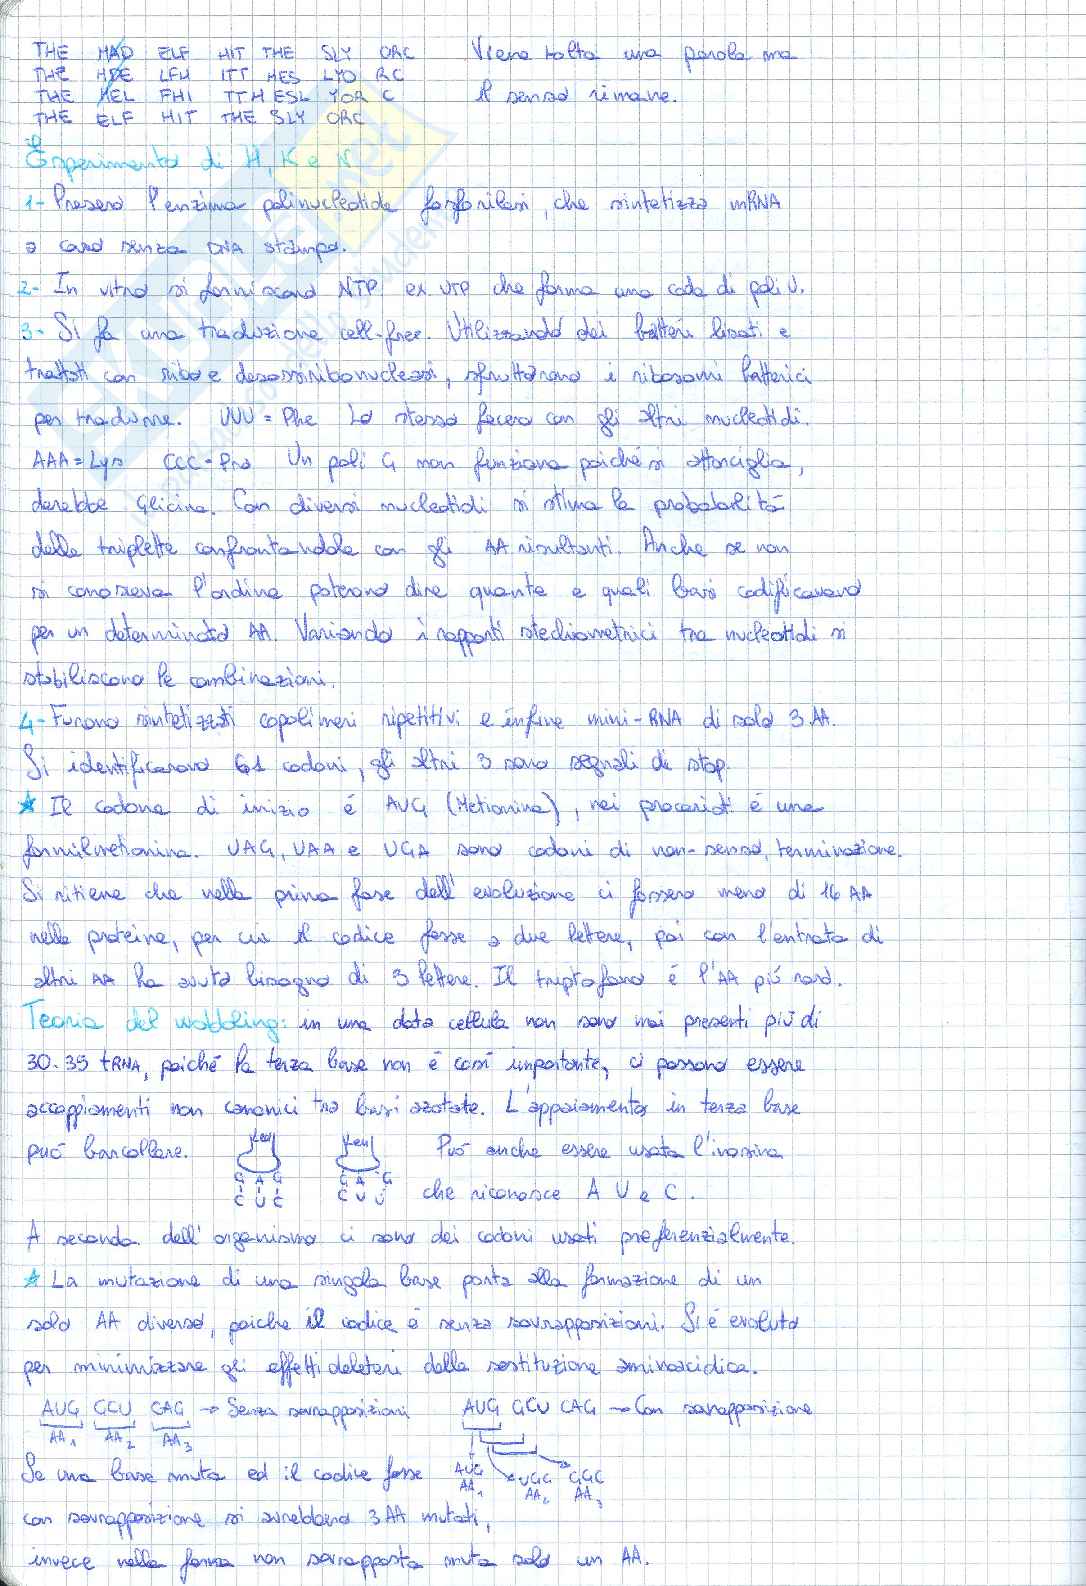 THE MAD ELF HIT THE SLY ORC Viene tolta una parola ma
THE HDE LFH ITT HES LYO RC il senso rimane.
THE HEL FHI TTH ESL YOR C
THE ELF HIT THE SLY ORC
Esperimento di H, K e N
1- Presero l'enzima polinucleotide fosforilasi, che sintetizza mRNA
a caso senza DNA stampo.
2- In vitro si forniscono NTP, ex UTP che forma una coda di poli U.
3- Si fa una traduzione cell-free. Utilizzando dei batteri lisati e
trattati con ribo e desossiribonucleasi, sfruttarono i ribosomi batterici
per tradurre. UUU = Phe Lo stesso fecero con gli altri nucleotidi.
AAA = Lys CCC = Pro Un poli G non funziona poiché si attorciglia,
darebbe Glicina. Con diversi nucleotidi si stima la probabilità
delle triplette confrontandole con gli AA risultanti. Anche se non
si conosceva l'ordine poterono dire quante e quali basi codificavano
per un determinato AA. Variando i rapporti stechiometrici tra nucleotidi si
stabiliscono le combinazioni.
4- Furono sintetizzati copolimeri ripetitivi e infine mini-RNA di solo 3 AA.
Si identificarono 61 codoni, gli altri 3 sono segnali di stop.
★ Il codone di inizio é AUG (Metionina), nei procarioti é una
formilmetionina. UAG, UAA e UGA sono codoni di non-senso, terminazione.
Si ritiene che nella prima fase dell'evoluzione ci fossero meno di 16 AA
nelle proteine, per cui il codice fosse a due lettere, poi con l'entrata di
altri AA ha avuto bisogno di 3 lettere. Il triptofano é l'AA più raro.
Teoria del wobbling: in una data cellula non sono mai presenti più di
30-35 tRNA, poiché la terza base non é così importante, ci possono essere
accoppiamenti non canonici tra basi azotate. L'appaiamento in terza base
può barcollare. Leu Leu Può anche essere usata l'inosina
G A G G A G
C U C C U U che riconosce A U e C.
A seconda dell'organismo ci sono dei codoni usati preferenzialmente.
★ La mutazione di una singola base porta alla formazione di un
solo AA diverso, poiche il codice é senza sovrapposizioni. Si é evoluto
per minimizzare gli effetti deleteri della sostituzione aminoacidica.
AUG GCU CAG → Senza sovrapposizioni AUG GCU CAG → Con sovrapposizione
AA1 AA2 AA3
Se una base muta ed il codice fosse AUG UGG GGC
AA1 AA2 AA3
con sovrapposizione si avrebbero 3 AA mutati,
invece nella forma non sovrapposta muta solo un AA.